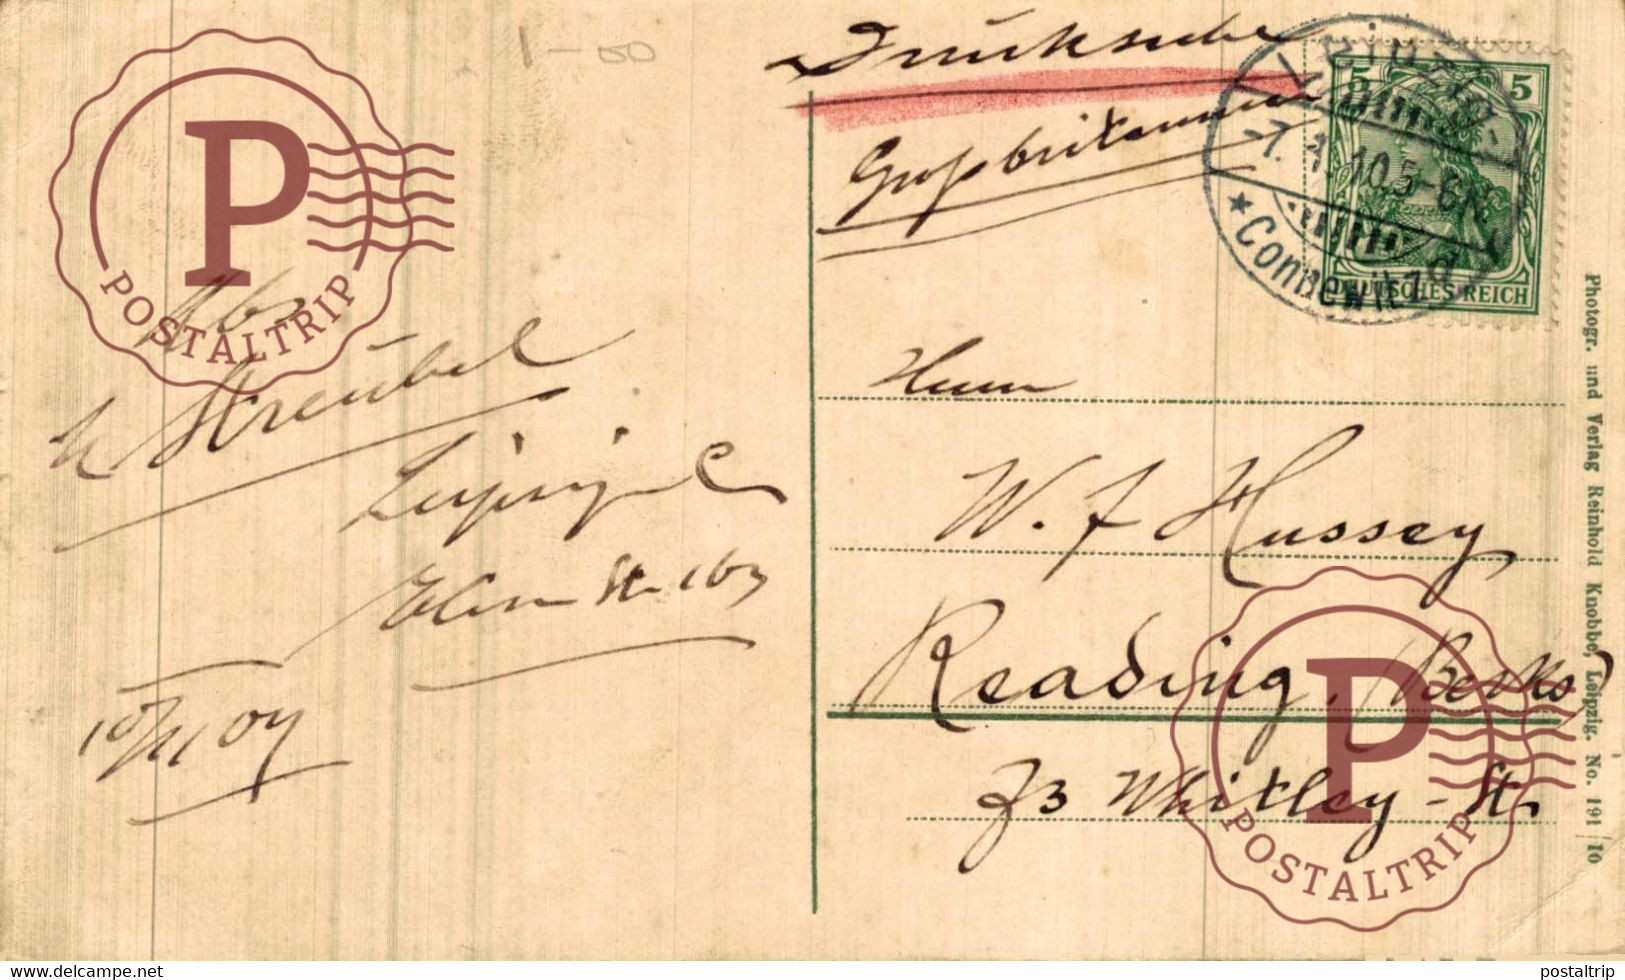 1-00
Drucksache
Großbritannien
5 5
Leipzig-
7.1.10.5-6N.
* Connewitz d
DEUTSCHES REICH
P
POSTALTRIP
Streubel
Leipzig C
Str. 163
Herrn
W. F Hussey
Reading, Berks
73 Whitley-St.
P
POSTALTRIP
Photogr. und Verlag Reinhold Knobbe, Leipzig. No. 191/10
www.delcampe.net
postaltrip